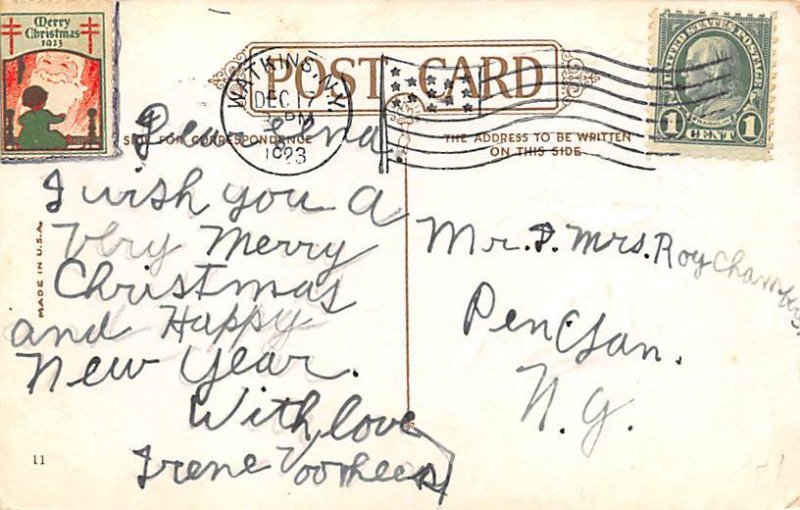 Merry
Christmas
1923
POST CARD
WATKINS, N.Y.
DEC 17
PM
1923
UNITED STATES POSTAGE
FRANKLIN
1 CENT 1
FOR CORRESPONDENCE
THE ADDRESS TO BE WRITTEN
ON THIS SIDE
MADE IN U.S.A.
Dear Lena
I wish you A
Very Merry
Christmas
and Happy
New Year.
With love
Irene Voorhees
Mr. & Mrs. Roy Chambers
Pen Yan.
N.Y.
11